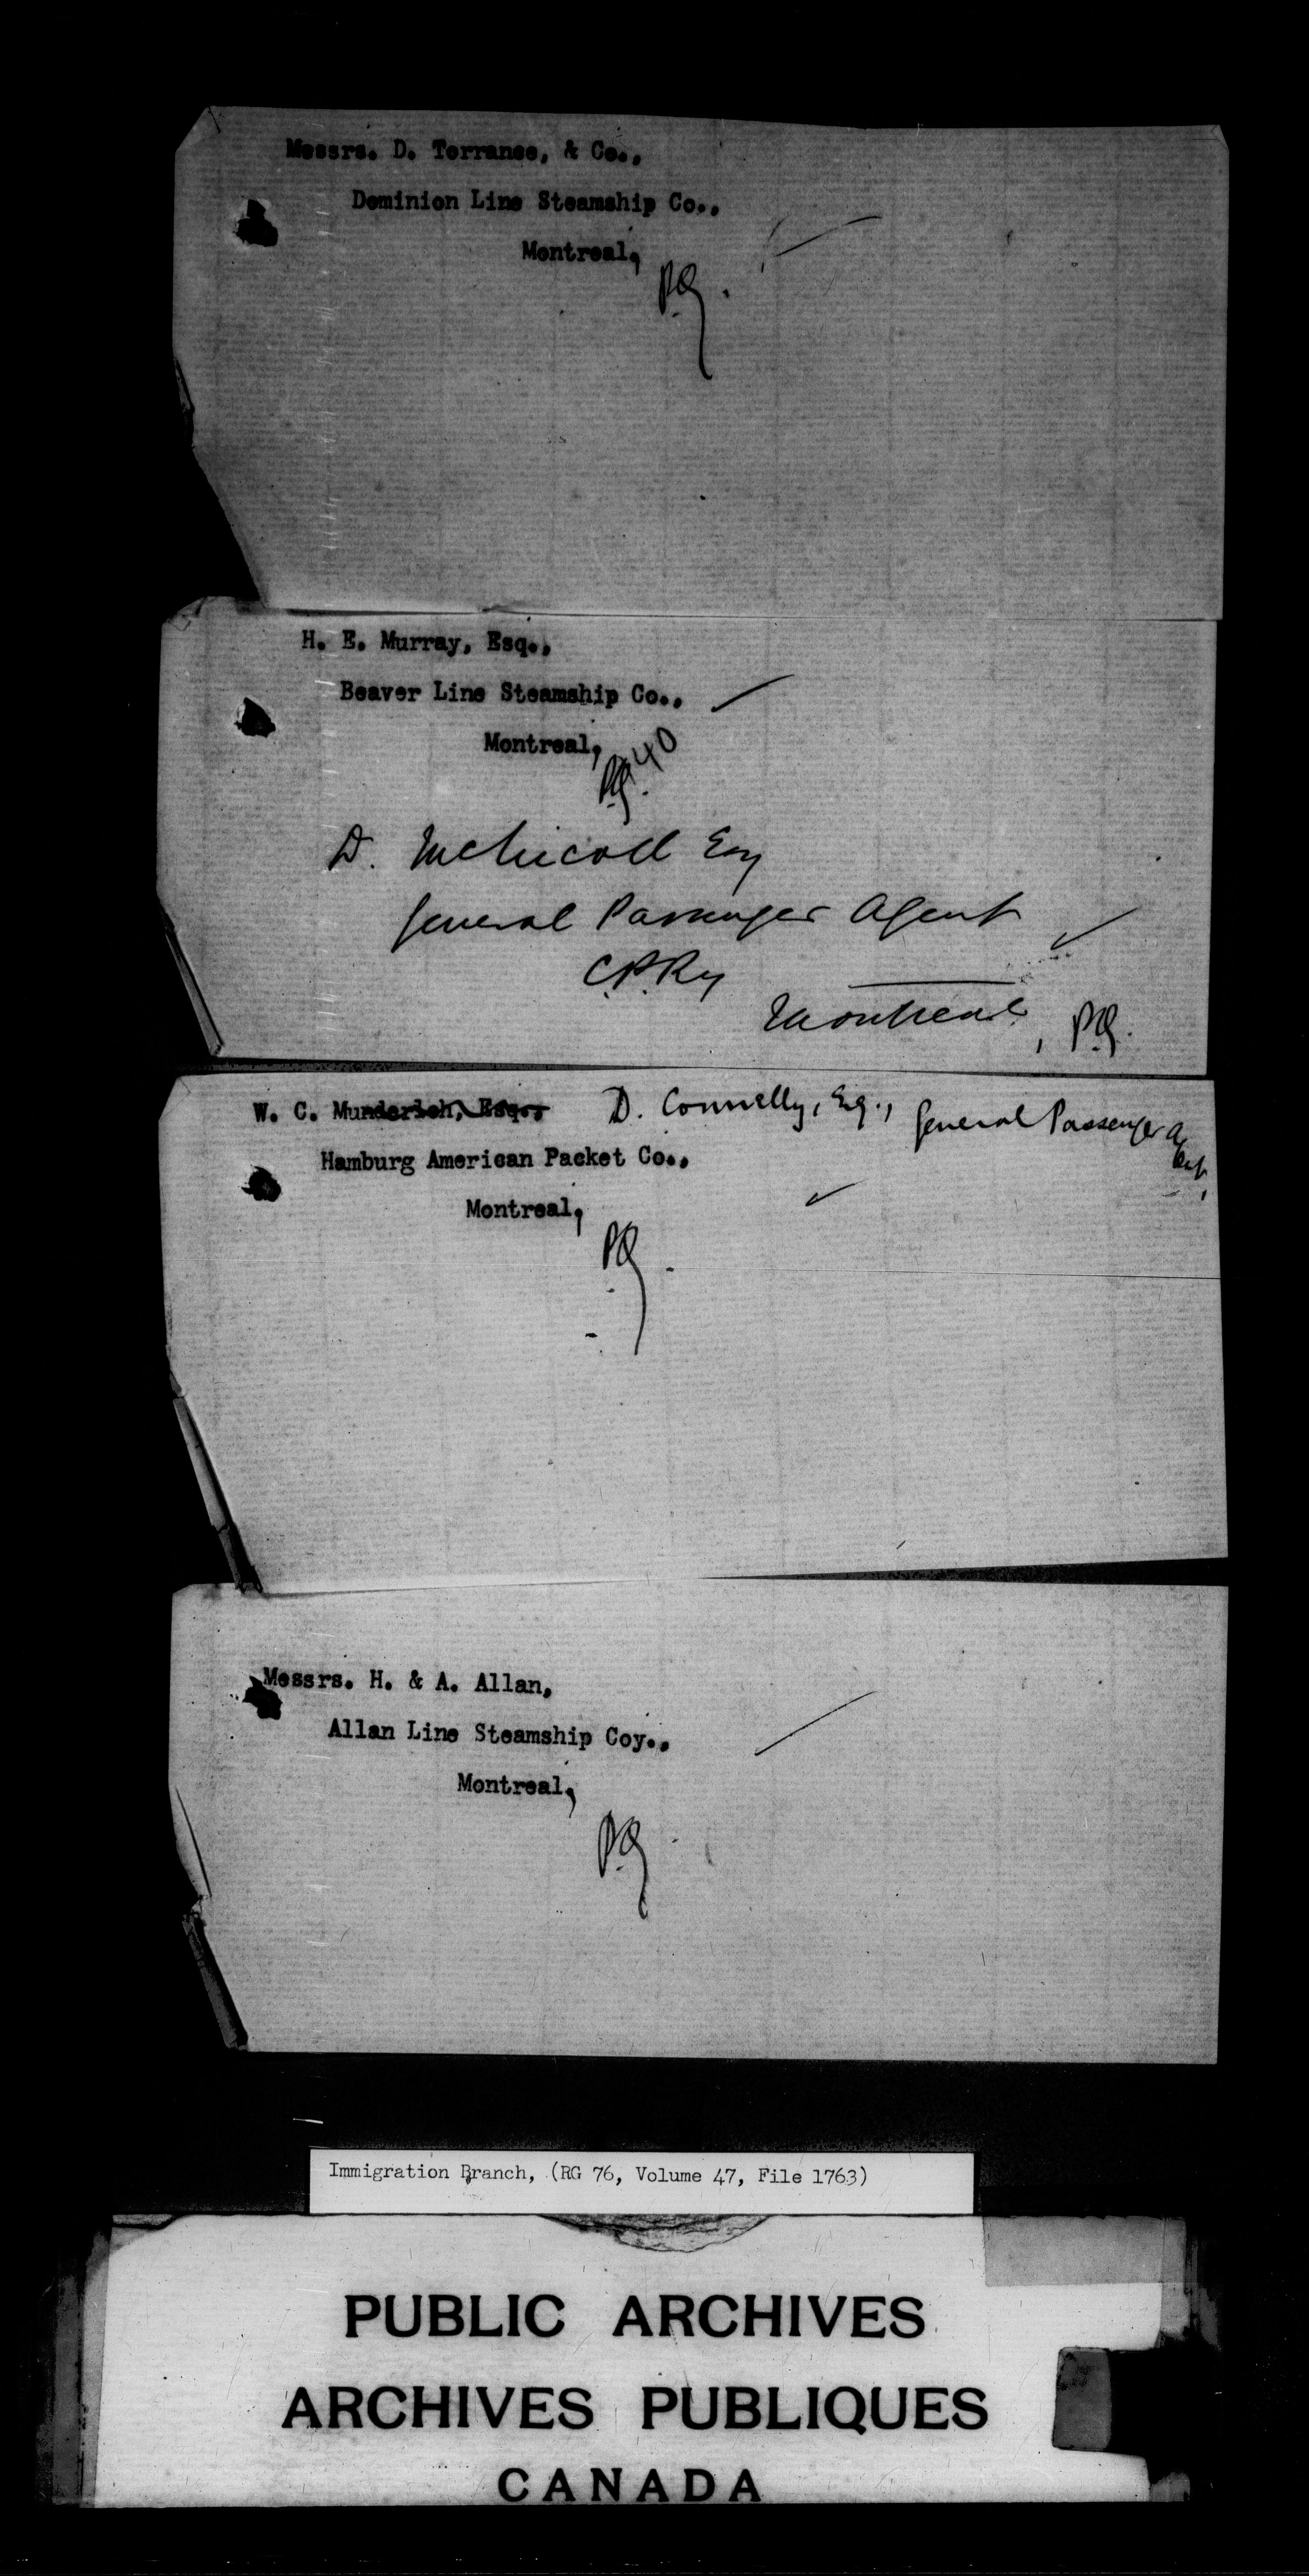 Messrs. D. Torrance, & Co.,
Dominion Line Steamship Co.,
Montreal,
P.Q.
H. E. Murray, Esq.,
Beaver Line Steamship Co.,
Montreal,
P.Q. 40
D. McNicoll Esq
General Passenger Agent
C.P.Ry
Montreal, P.Q.
W. C. Munderloh, Esq., D. Connelly, Esq., General Passenger Agent,
Hamburg American Packet Co.,
Montreal,
P.Q.
Messrs. H. & A. Allan,
Allan Line Steamship Coy.,
Montreal,
P.Q.
Immigration Branch, (RG 76, Volume 47, File 1763)
PUBLIC ARCHIVES
ARCHIVES PUBLIQUES
CANADA